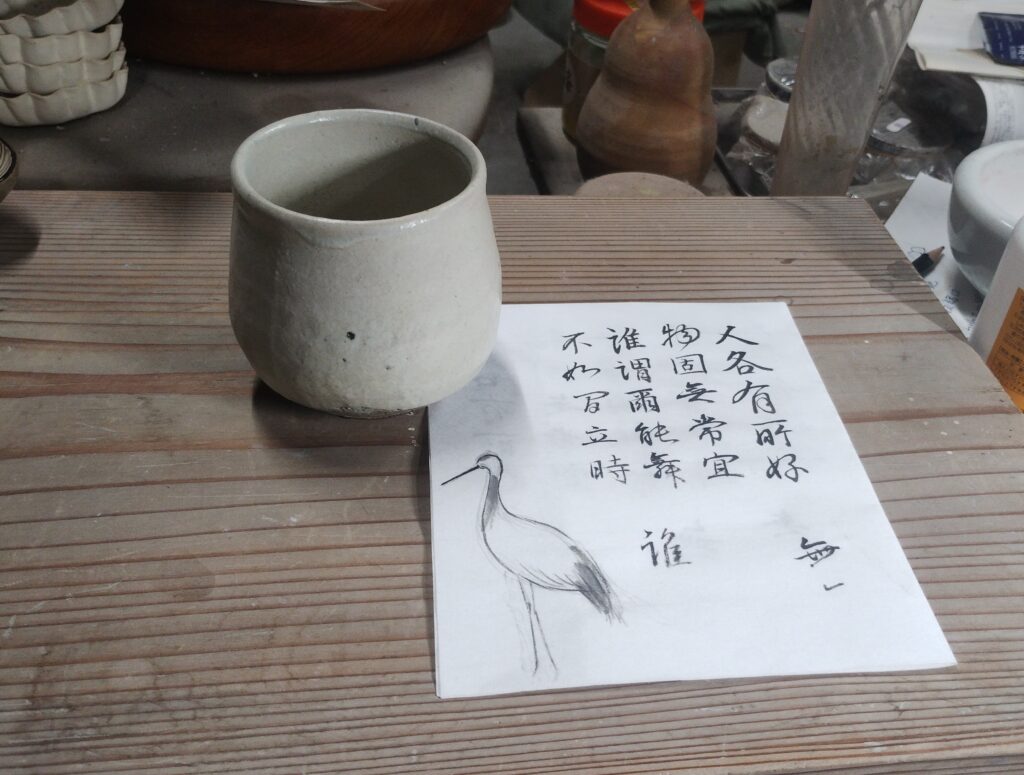 人各有所好
物固無常宜
誰謂爾能舞
不如間立時
無
誰